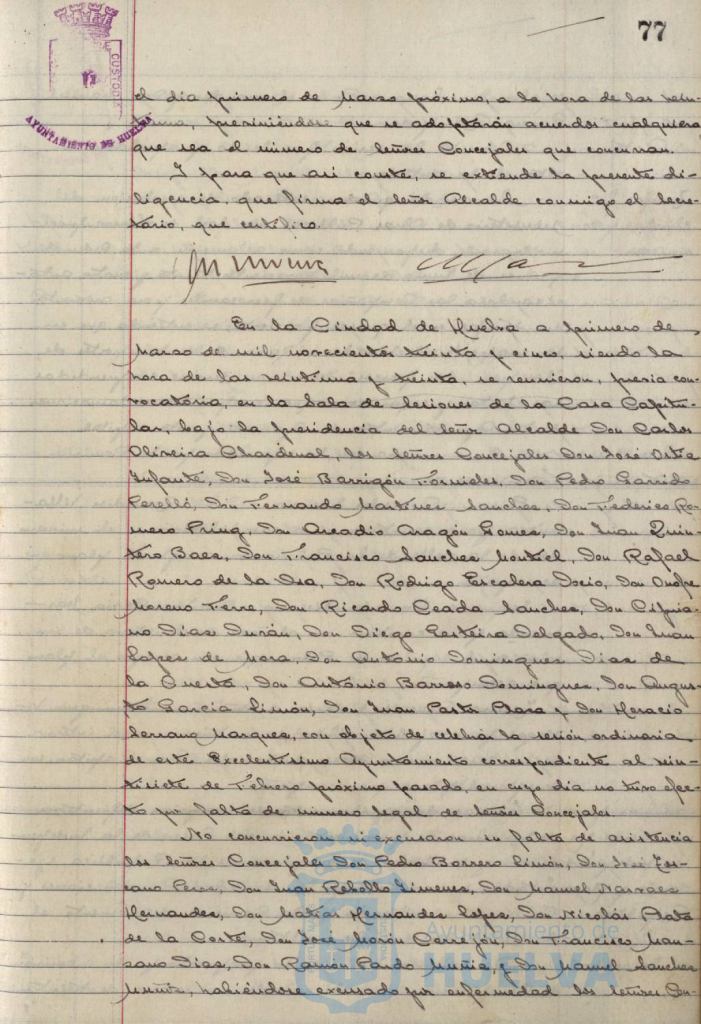 77
CUSTODIA
AYUNTAMIENTO DE HUELVA
el día primero de Marzo próximo, a la hora de las vein-
tiuna, previniéndose que se adoptarán acuerdos cualquiera
que sea el número de señores Concejales que concurran.
Y para que así conste, se extiende la presente di-
ligencia, que firma el señor Alcalde conmigo el Secre-
tario, que certifico.
En la Ciudad de Huelva a primero de
Marzo de mil novecientos treinta y cinco, siendo la
hora de las veintiuna y treinta, se reunieron, previa con-
vocatoria, en la Sala de Sesiones de la Casa Capitu-
lar, bajo la presidencia del señor Alcalde Don Carlos
Oliveira Chardenal, los señores Concejales Don José Oria
Infante, Don José Barrigón Fornieles, Don Pedro Garrido
Perelló, Don Fernando Martinez Sanchez, Don Federico Ro-
mero Pring, Don Arcadio Aragón Gomez, Don Juan Quin-
tero Baez, Don Francisco Sanchez Montiel, Don Rafael
Romero de la Osa, Don Rodrigo Escalera Docio, Don Onofre
Moreno Ferre, Don Ricardo Ceada Sanchez, Don Cipria-
no Diaz Durán, Don Diego Delgado, Don Juan
Lopez de Mora, Don Antonio Dominguez Diaz de
la Cuesta, Don Antonio Barroso Dominguez, Don Augus-
to Garcia Limón, Don Juan Pasta Plaza y Don Horacio
Serrano Marquez, con objeto de celebrar la sesión ordinaria
de este Excelentísimo Ayuntamiento correspondiente al vein-
tisiete de Febrero próximo pasado, en cuyo día no tuvo efec-
to por falta de número legal de señores Concejales.
No concurrieron ni excusaron su falta de asistencia
los señores Concejales Don Pedro Borrero Limón, Don José Tos-
cano Perez, Don Juan Rebollo Jimenez, Don Manuel Narvaez
Hernandez, Don Matias Hernandez Lopez, Don Nicolás Plata
de la Corte, Don José Morón Carrejón, Don Francisco Man-
zano Diaz, Don Ramón Pardo Muñiz, y Don Manuel Sanchez
Muñiz, habiéndose excusado por enfermedad los señores Con-
Ayuntamiento de
HUELVA